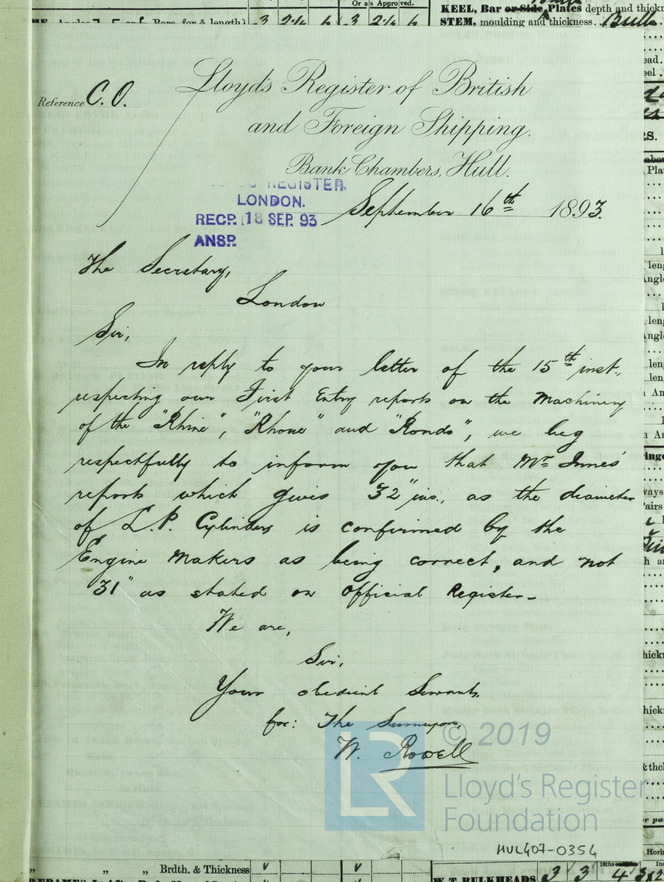 Or as Approved.
KEEL, Bar or Side Plates depth and thickn
STEM, moulding and thickness. Bulb
Reference C.O.
Lloyd's Register of British
and Foreign Shipping.
Bank Chambers, Hull.
REGISTER,
LONDON.
RECP. 18 SEP. 93
ANSP.
September 16th 1893.
The Secretary,
London
Sir,
In reply to your letter of the 15th inst.,
respecting our First Entry reports on the Machinery
of the "Rhine", "Rhone" and "Rondo", we beg
respectfully to inform you that Mr. Innes'
reports which gives 32" ins., as the diameter
of L.P. Cylinders is confirmed by the
Engine Makers as being correct, and not
31" as stated on Official Register-
We are,
Sir,
Your obedient Servants,
for: The Surveyors,
W. Rowell
© 2019
LR
Lloyd's Register
Foundation
HUL407-0354
" " " Brdth. & Thickness
W.T. BULKHEADS 3 3 4